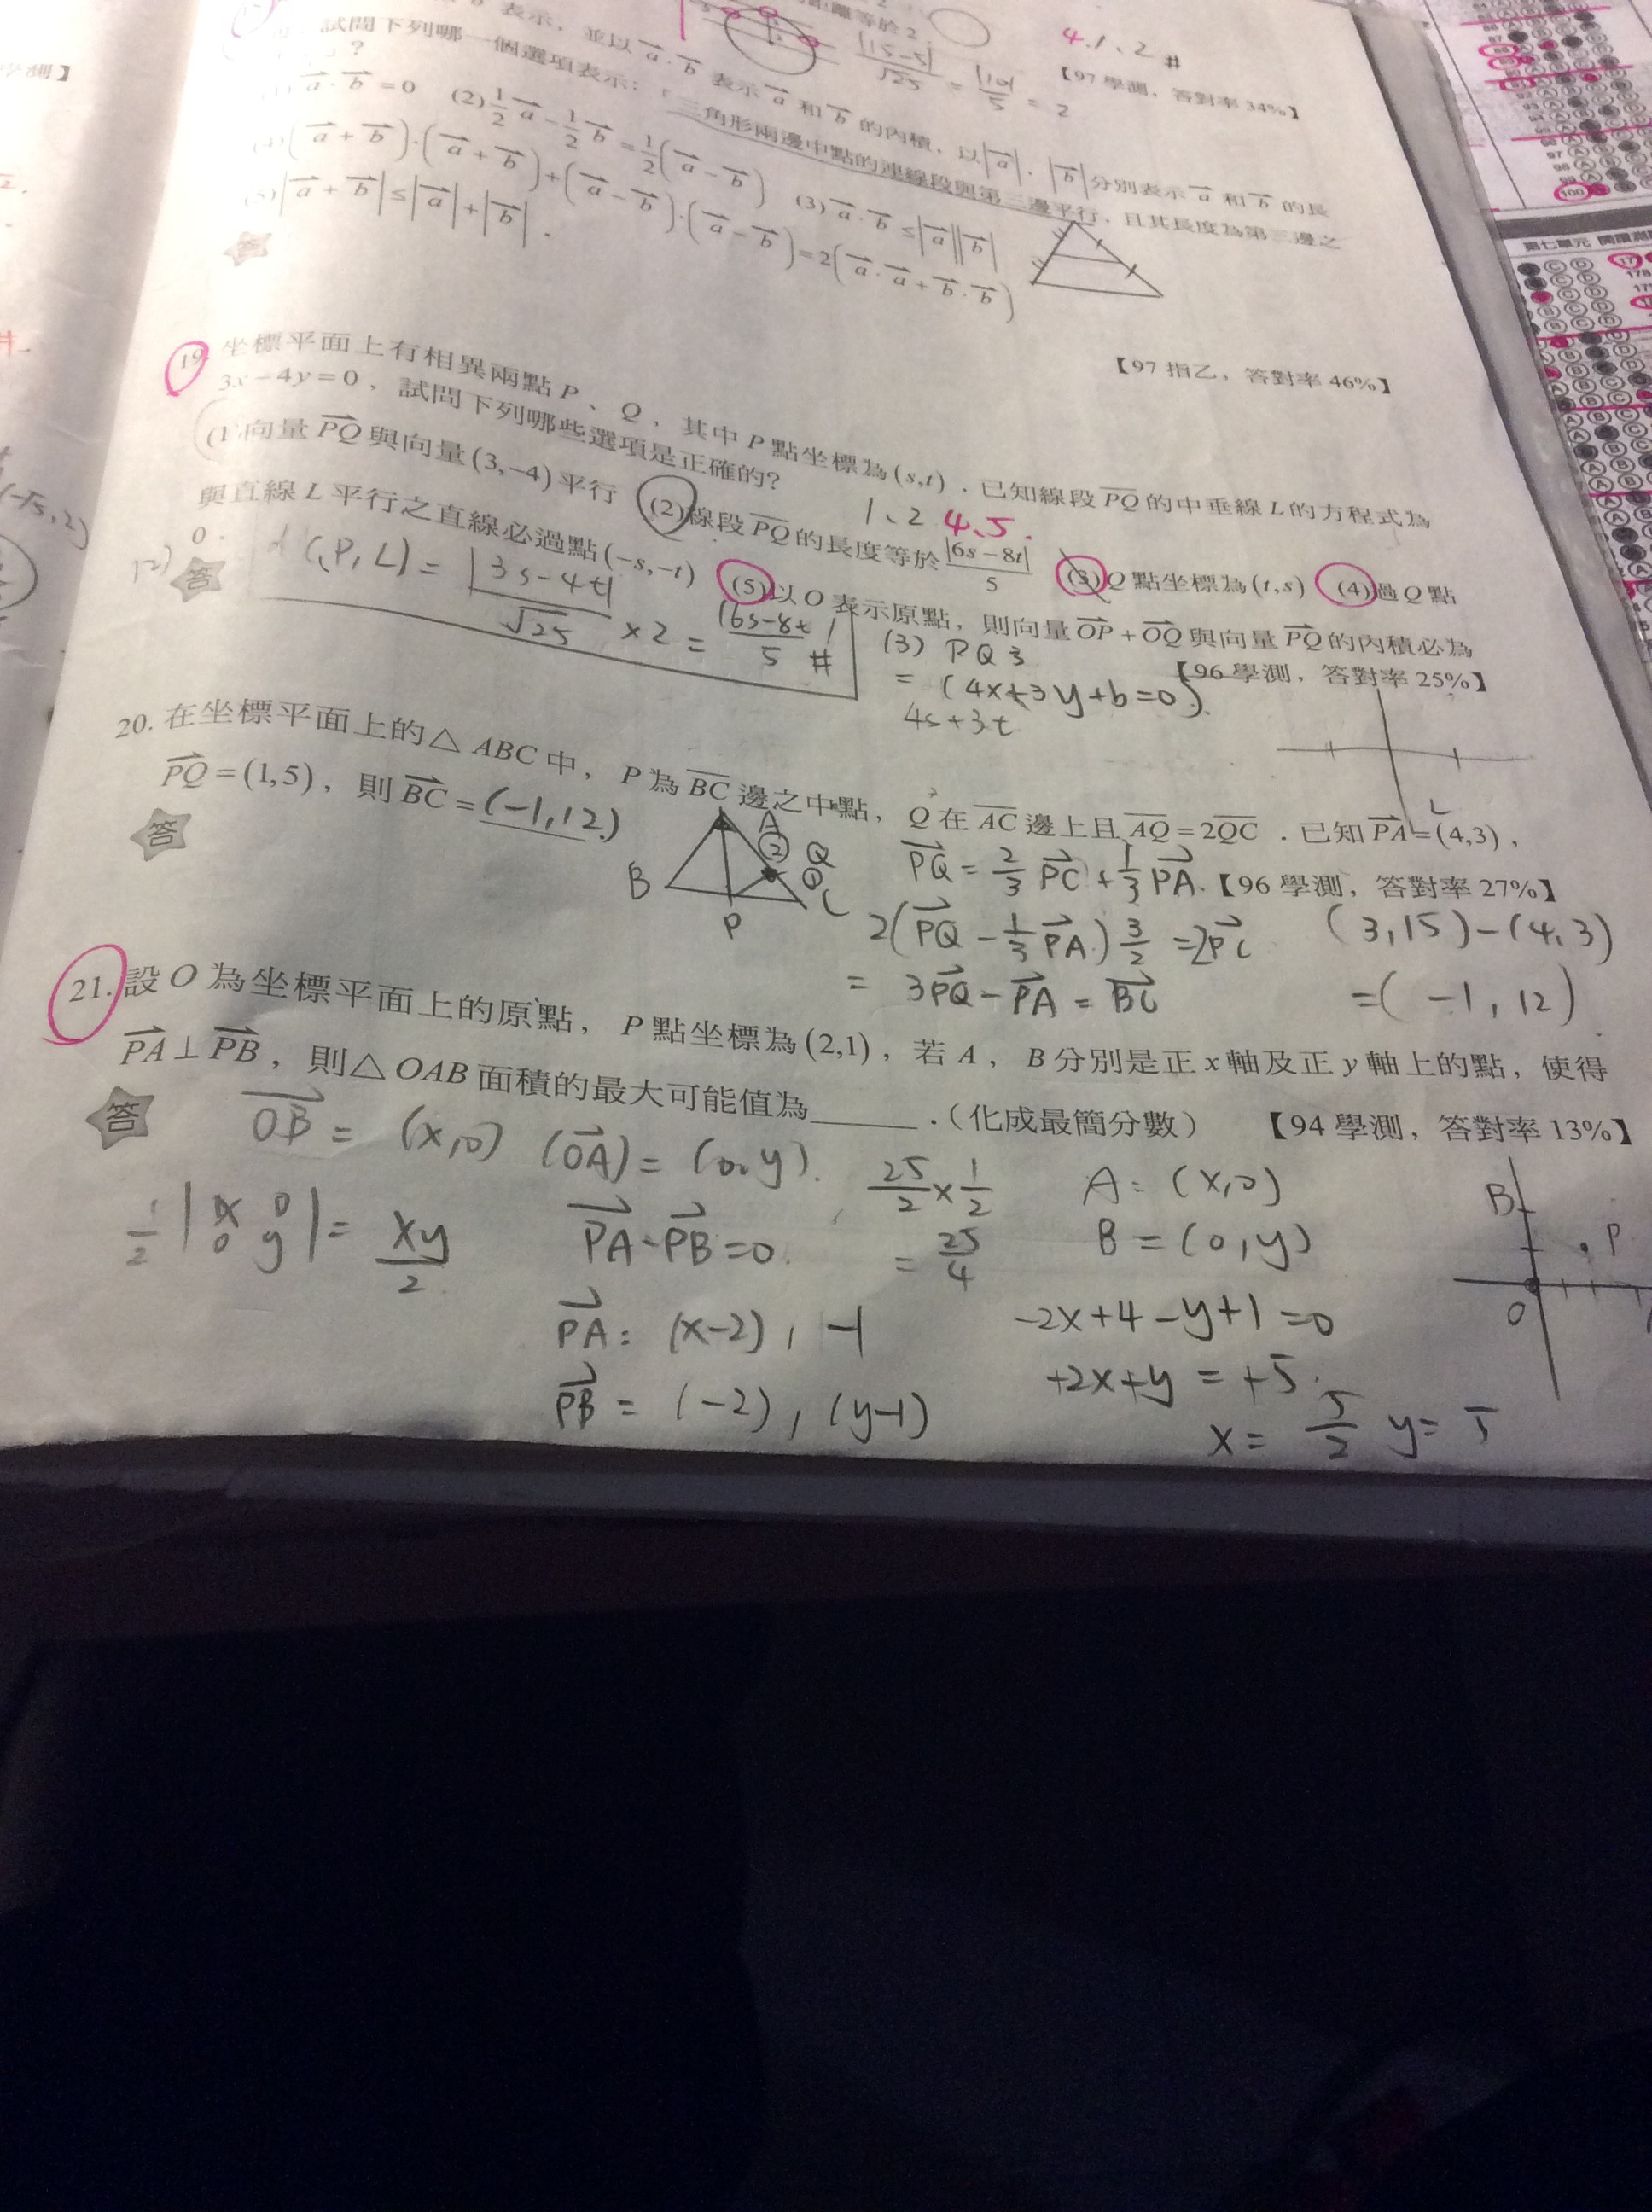 距離等於 2 .
|15-5|/√25 = |10|/5 = 2
4. 1、2 #
【97 學測，答對率 34%】
表示，並以 a⃗·b⃗ 表示 a⃗ 和 b⃗ 的內積，以 |a⃗|、|b⃗| 分別表示 a⃗ 和 b⃗ 的長
試問下列哪一個選項表示：「三角形兩邊中點的連線段與第三邊平行，且其長度為第三邊之
?
a⃗·b⃗=0 (2) 1/2 a⃗ - 1/2 b⃗ = 1/2(a⃗ - b⃗) (3) a⃗·b⃗ ≤ |a⃗||b⃗|
(4) (a⃗+b⃗)·(a⃗+b⃗)+(a⃗-b⃗)·(a⃗-b⃗)=2(a⃗·a⃗+b⃗·b⃗)
(5) |a⃗+b⃗| ≤ |a⃗|+|b⃗| .
答
【97 指乙，答對率 46%】
19. 坐標平面上有相異兩點 P、Q，其中 P 點坐標為 (s,t) . 已知線段 PQ 的中垂線 L 的方程式為
3x-4y=0，試問下列哪些選項是正確的?
1、2 4、5.
(1) 向量 PQ 與向量 (3,-4) 平行 (2) 線段 PQ 的長度等於 |6s-8t|/5 (3) Q 點坐標為 (t,s) (4) 過 Q 點
與直線 L 平行之直線必過點 (-s,-t) (5) 以 O 表示原點，則向量 OP + OQ 與向量 PQ 的內積必為
0 .
【96 學測，答對率 25%】
答
d(P,L) = |3s-4t|/√25 ×2 = |6s-8t|/5 #
(3) PQ3
= (4x+3y+b=0).
4s+3t
L
20. 在坐標平面上的△ABC 中，P 為 BC 邊之中點，Q 在 AC 邊上且 AQ=2QC . 已知 PA=(4,3)，
PQ=(1,5)，則 BC=(-1,12)
【96 學測，答對率 27%】
答
A
② Q
①
B
P
C
PQ = 2/3 PC + 1/3 PA
2(PQ - 1/3 PA) 3/2 = 2PC
= 3PQ - PA = BC
(3,15)-(4,3)
=(-1,12)
21. 設 O 為坐標平面上的原點，P 點坐標為 (2,1)，若 A，B 分別是正 x 軸及正 y 軸上的點，使得
PA⊥PB，則△OAB 面積的最大可能值為______ .（化成最簡分數） 【94 學測，答對率 13%】
答
OB = (x,0) (OA) = (0,y).
1/2 |x 0 0 y| = xy/2
PA·PB=0
PA: (x-2), -1
PB = (-2), (y-1)
25/2 × 1/2
= 25/4
A: (x,0)
B = (0,y)
-2x+4-y+1=0
+2x+y = +5.
x = 5/2 y = 5
B
P
O
第七單元